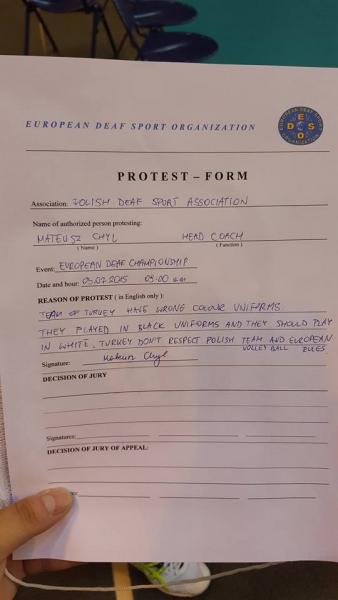 EUROPEAN DEAF SPORT ORGANIZATION
EUROPEAN DEAF SPORT ORGANIZATION
E
D S
O
PROTEST – FORM
Association: POLISH DEAF SPORT ASSOCIATION
Name of authorized person protesting:
MATEUSZ CHYL HEAD COACH
( Name ) ( Function )
Event: EUROPEAN DEAF CHAMPIONSHIP
Date and hour: 05.07.2015 09.00
REASON OF PROTEST ( in English only ):
TEAM OF TURVEY HAVE WRONG COLOUR UNIFORMS.
THEY PLAYED IN BLACK UNIFORMS AND THEY SHOULD PLAY
IN WHITE. TURVEY DON'T RESPECT POLISH TEAM AND EUROPEAN
VOLLEYBALL RULES
Signature: Mateusz Chyl
DECISION OF JURY
Signatures:
DECISION OF JURY OF APPEAL: